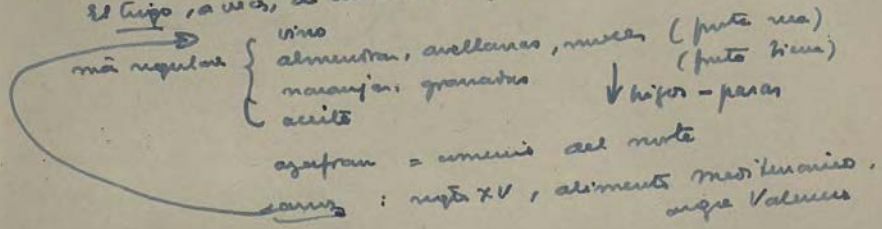 El trigo, a veces,
vino
más regulares { almendras, avellanas, nueces (fruta seca)
naranjas, granadas (fruta
aceite ↓ higos - pasas
azafran = comercio del norte
arroz : siglo XV, alimento mediterraneo,
Valencia